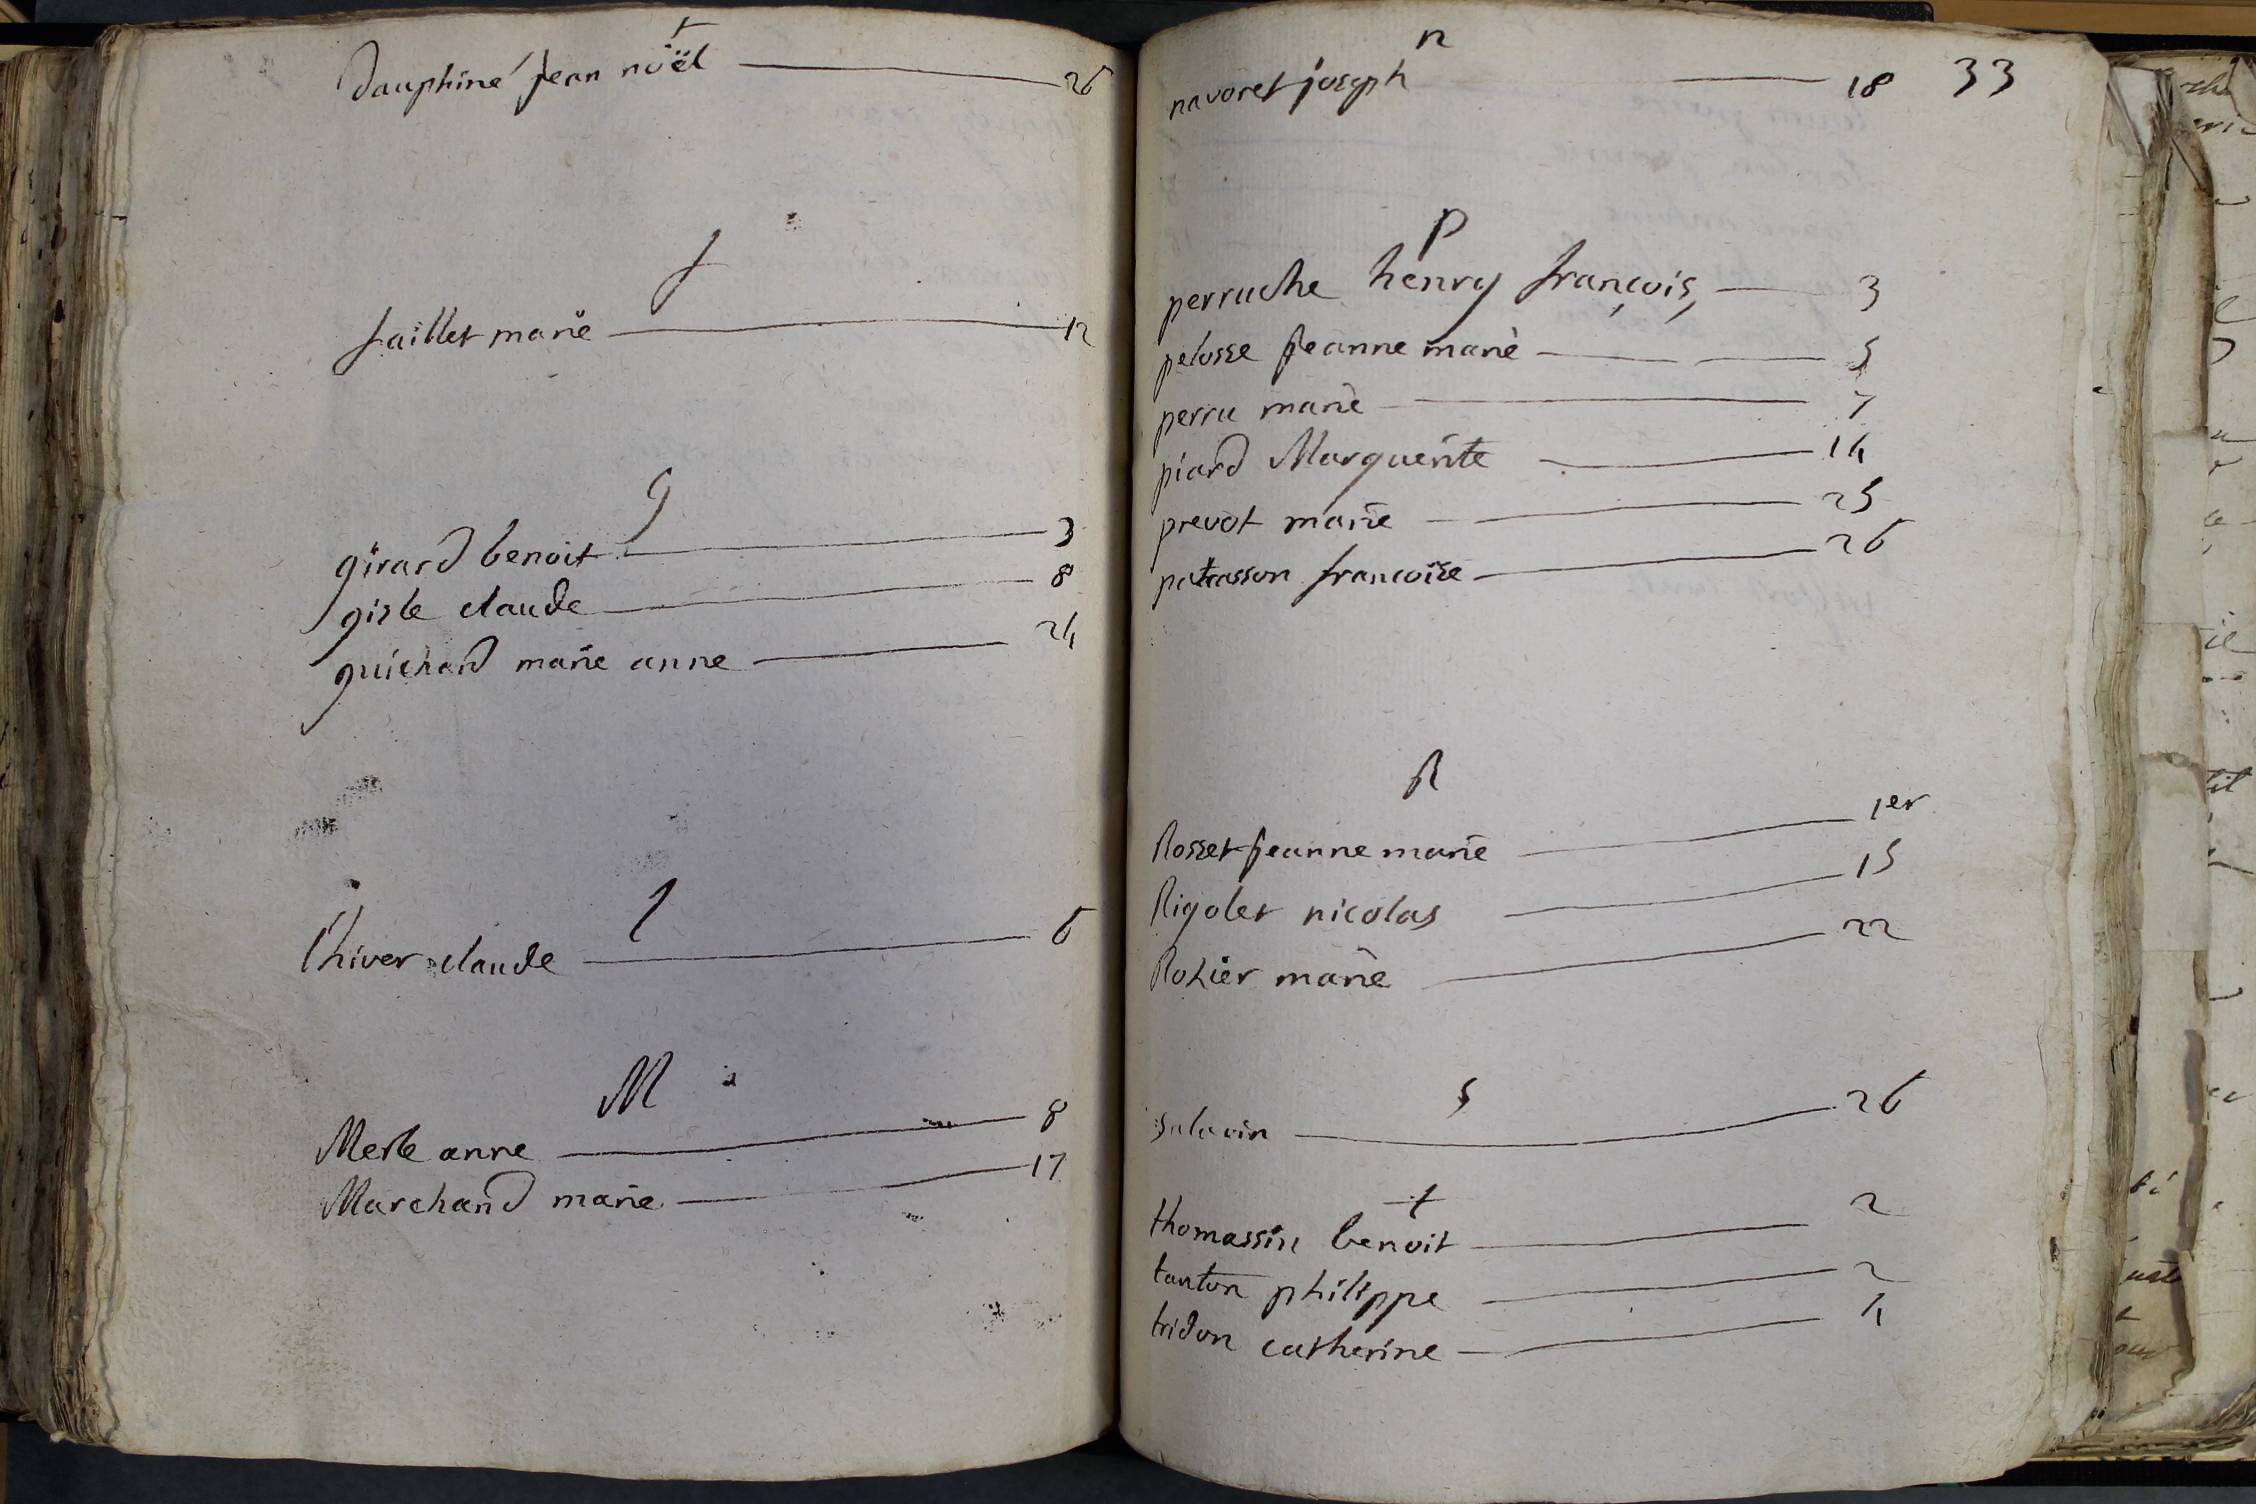 dauphiné Jean noël 26
f
faillet marie 12
g
girard benoit 3
gisle claude 8
guichard marie anne 24
l
l'hiver claude 6
M
Merle anne 8
Marchand marie 17
33
n
navoret joseph 18
p
perruche henry françois 3
pelosse Jeanne marie 5
perru marie 7
piard Marguerite 14
prevot marie 25
patrasson francoise 26
R
Rosset Jeanne marie 1er
Rigolet nicolas 15
Rozier marie 22
s
salavin 26
t
thomassin benoit 2
tanton philippe 2
tridon catherine 4